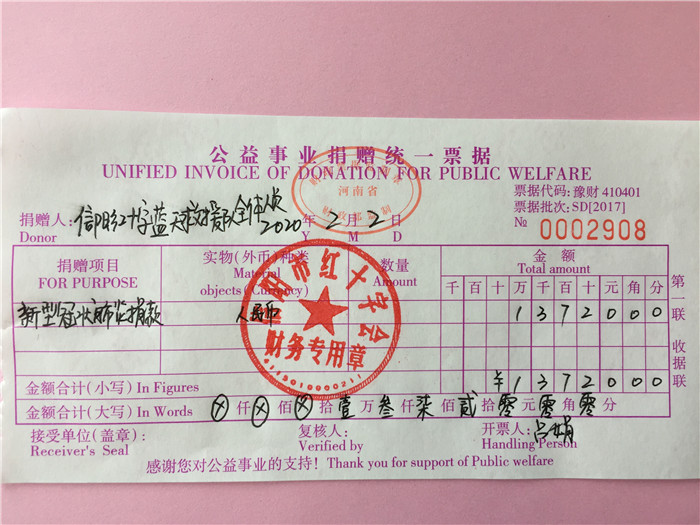 公益事业捐赠统一票据
UNIFIED INVOICE OF DONATION FOR PUBLIC WELFARE
河南省
财政部监制
票据代码: 豫财 410401
票据批次: SD[2017]
№ 0002908
捐赠人: 信阳红十字蓝天救援队全体队员 2020 年 2 月 2 日
Donor Y M D
捐赠项目 实物(外币)种类 数量 金额
FOR PURPOSE Material objects (Currency) Amount Total amount
千 百 十 万 千 百 十 元 角 分
新型冠状肺炎捐款 人民币 1 3 7 2 0 0 0
信阳市红十字会
财务专用章
4115010000211
金额合计(小写) In Figures ¥ 1 3 7 2 0 0 0
金额合计(大写) In Words ⊗ 仟 ⊗ 佰 ⊗ 拾 壹 万 叁 仟 柒 佰 贰 拾 零 元 零 角 零 分
接受单位(盖章): 复核人: 开票人: 吕娟
Receiver's Seal Verified by Handling Person
感谢您对公益事业的支持! Thank you for support of Public welfare
第一联 收据联